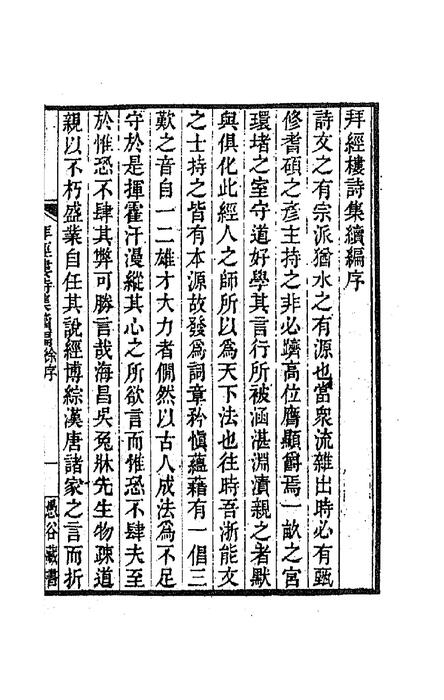 拜經樓詩集續編序
詩文之有宗派猶水之有源也當衆流雜出時必有甄
修耆碩之彥主持之非必躋高位膺顯爵焉一畝之宮
環堵之室守道好學其言行所被涵湛淵漬親之者默
與俱化此經人之師所以為天下法也往時吾浙能文
之士持之皆有本源故發為詞章矜慎蘊藉有一倡三
歎之音自一二雄才大力者僩然以古人成法為不足
守於是揮霍汗漫縱其心之所欲言而惟恐不肆夫至
於惟恐不肆其弊可勝言哉海昌吳兔牀先生物疎道
親以不朽盛業自任其說經博綜漢唐諸家之言而折
拜經樓詩集續編序
一
愚谷叢書